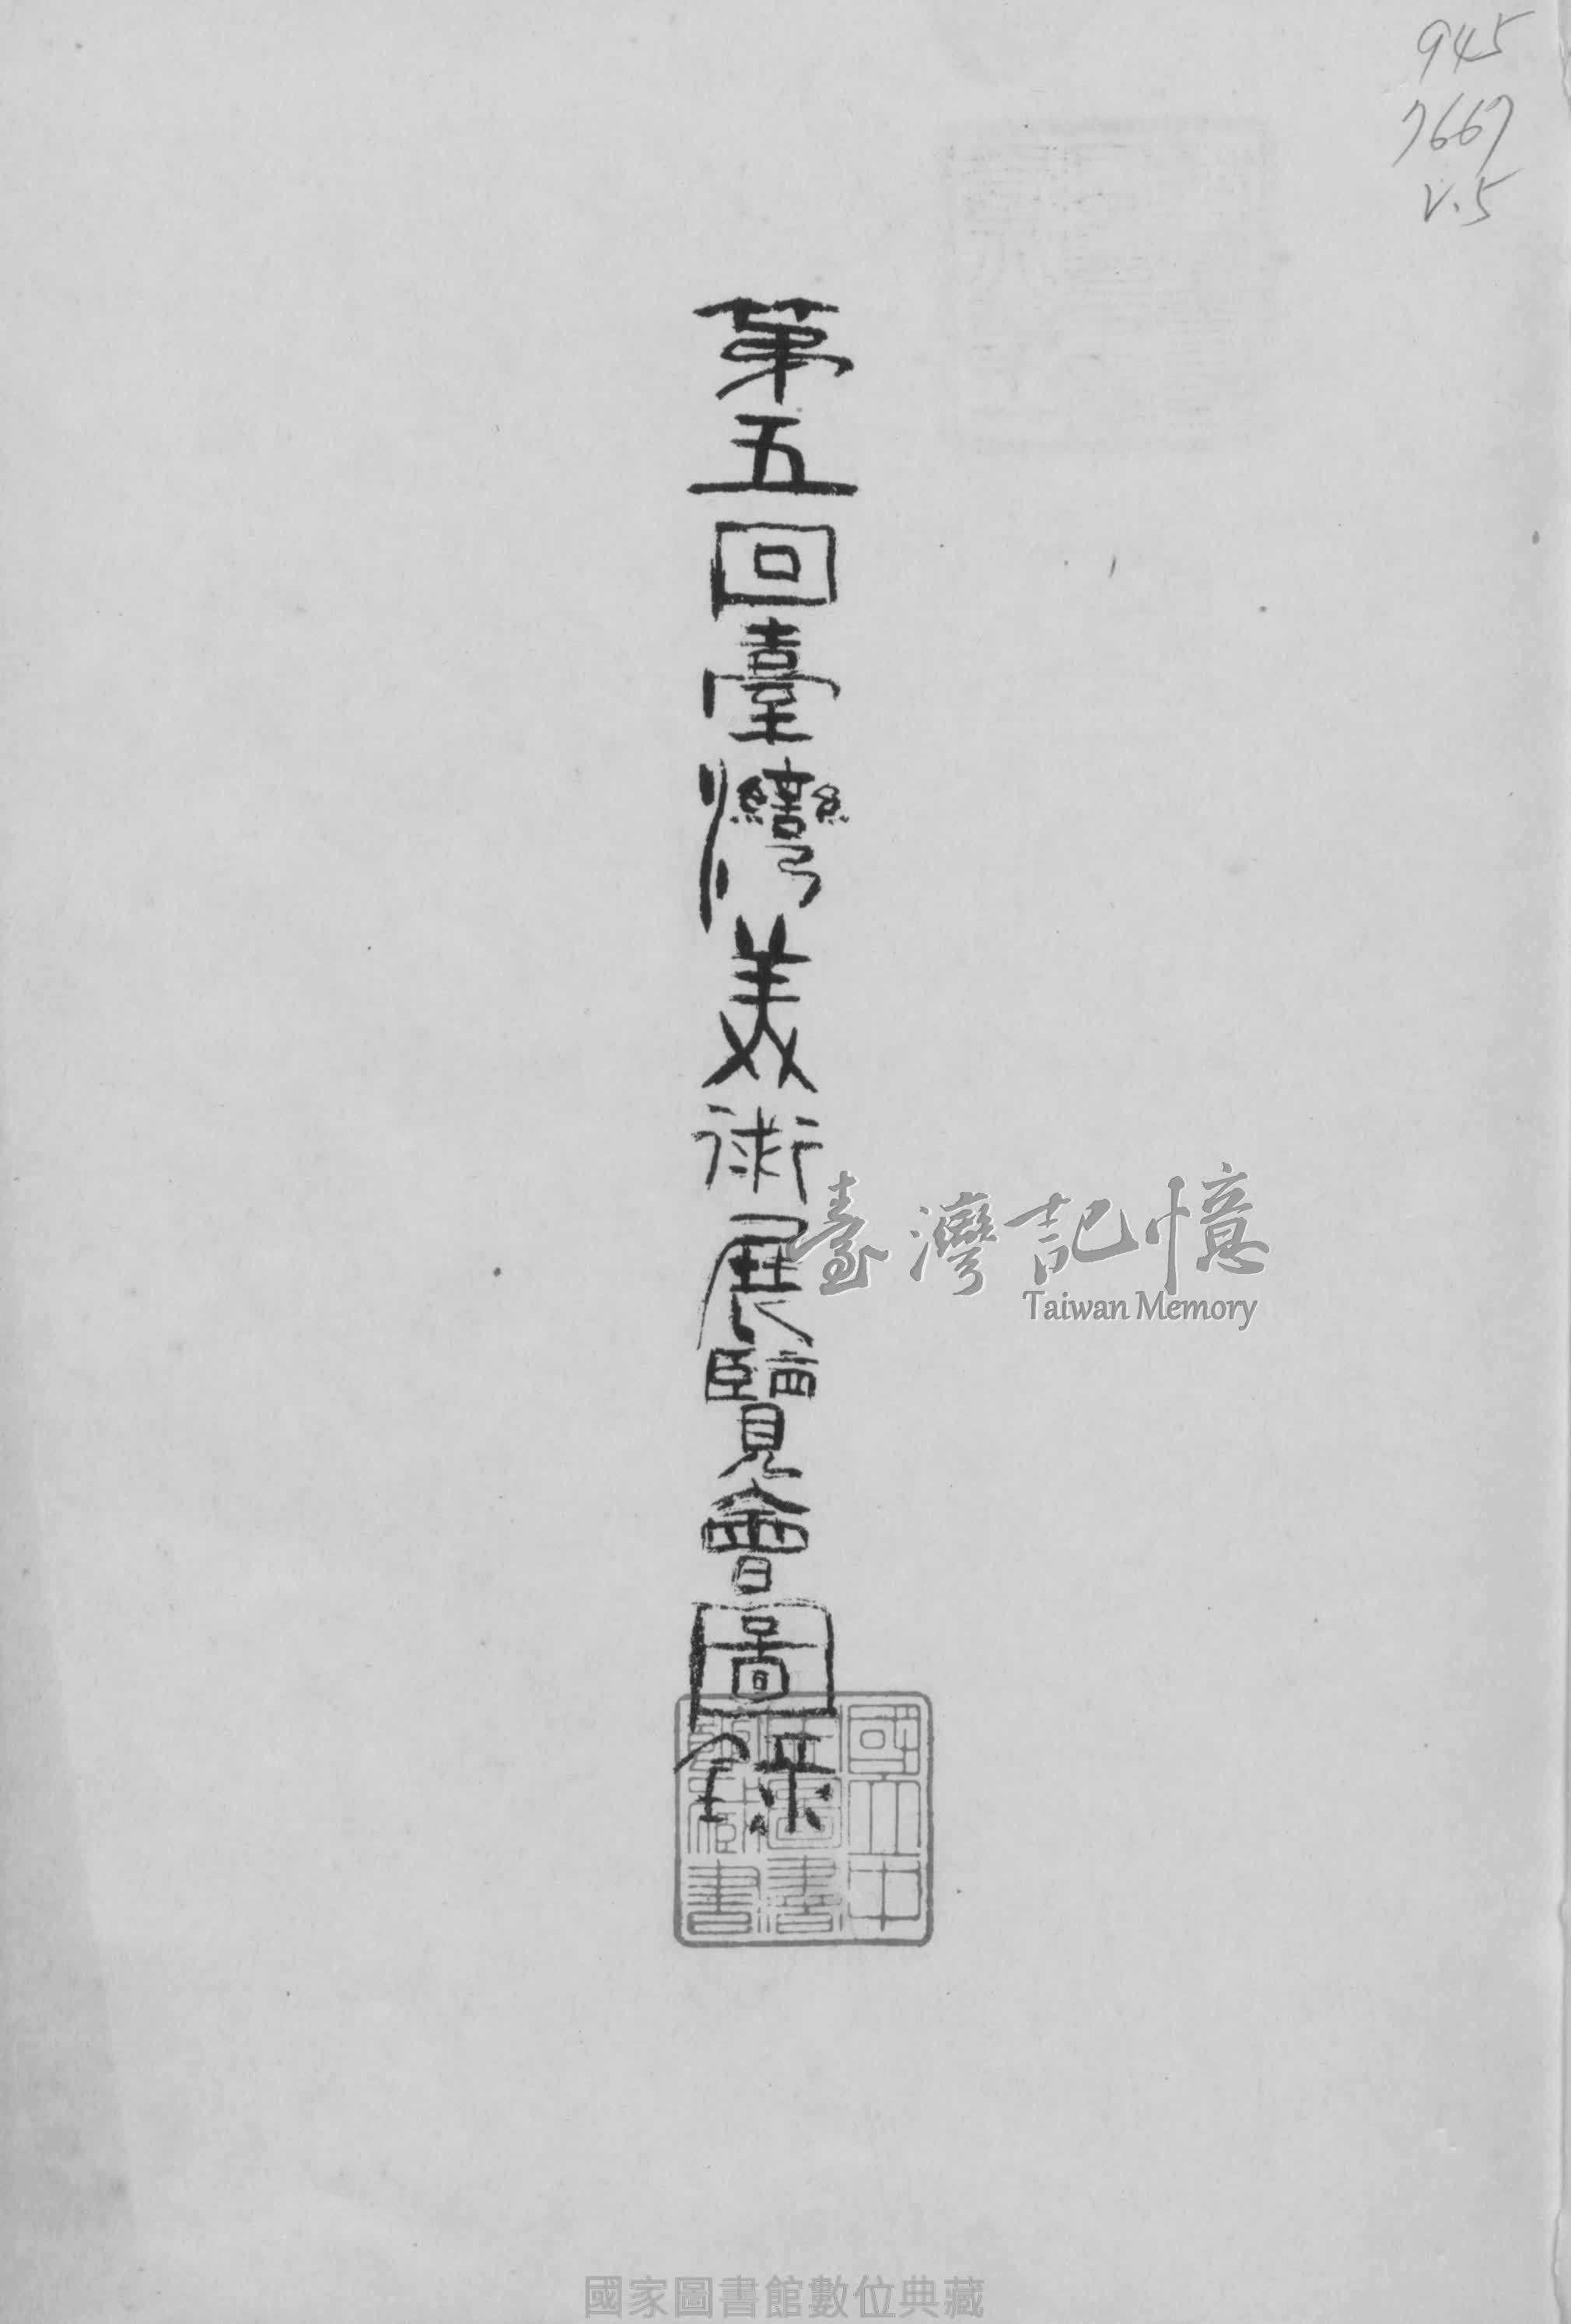 945
7667
V.5
第五回臺灣美術展覽會圖錄
臺灣記憶
Taiwan Memory
國立中
央圖書
館藏書
國家圖書館數位典藏